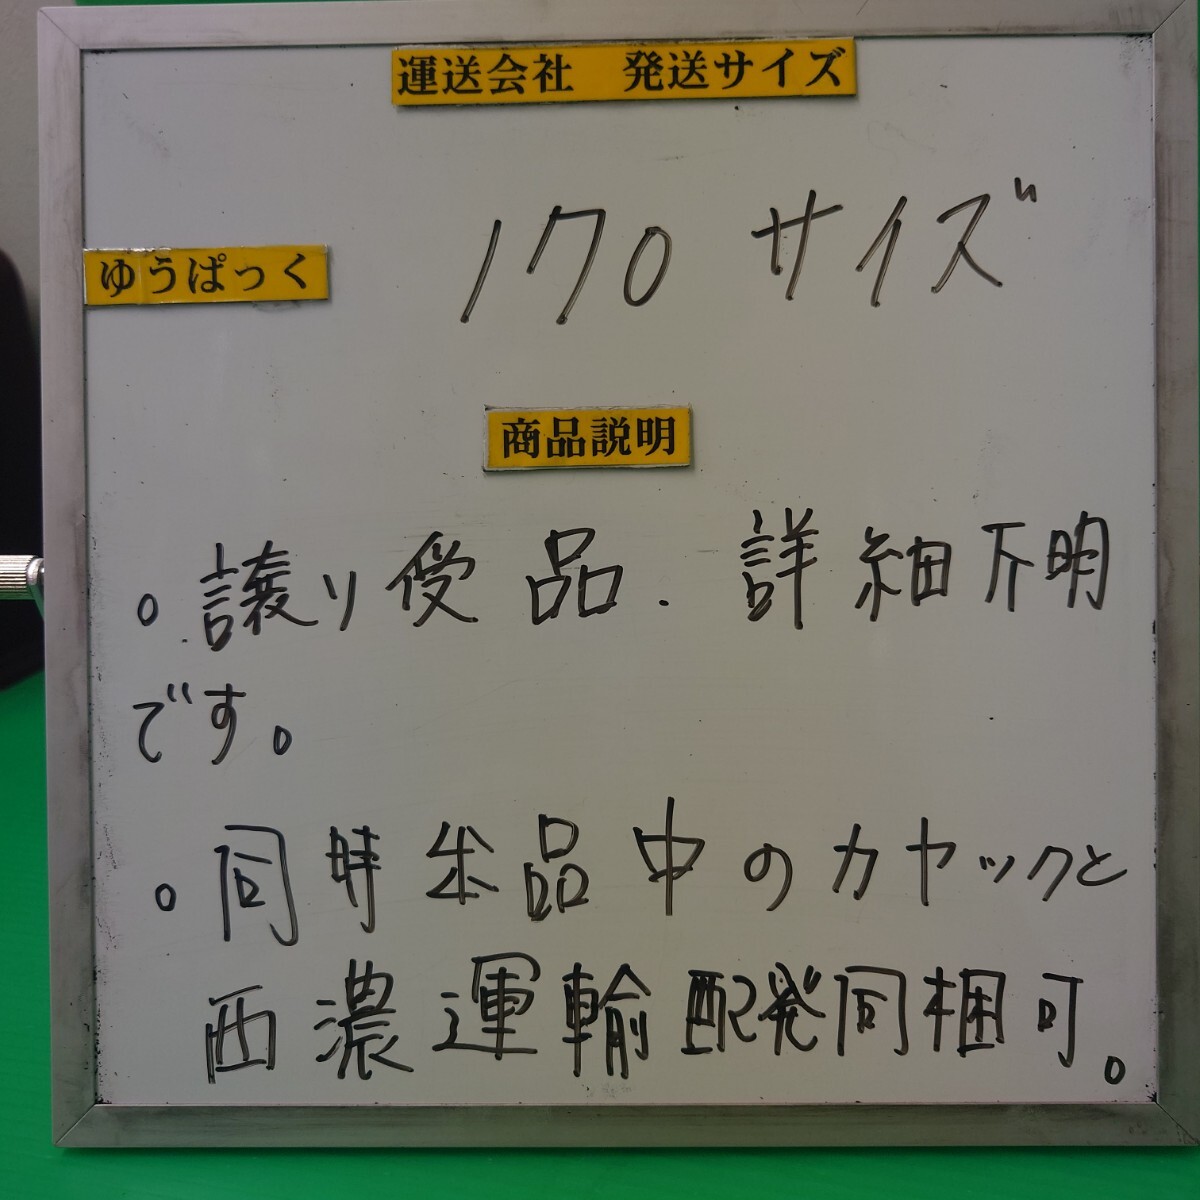 運送会社　発送サイズ
170 サイズ
ゆうぱっく
商品説明
。譲り受品．詳細不明
です。
。同時出品中のカヤックと
西濃運輸配発同梱可。